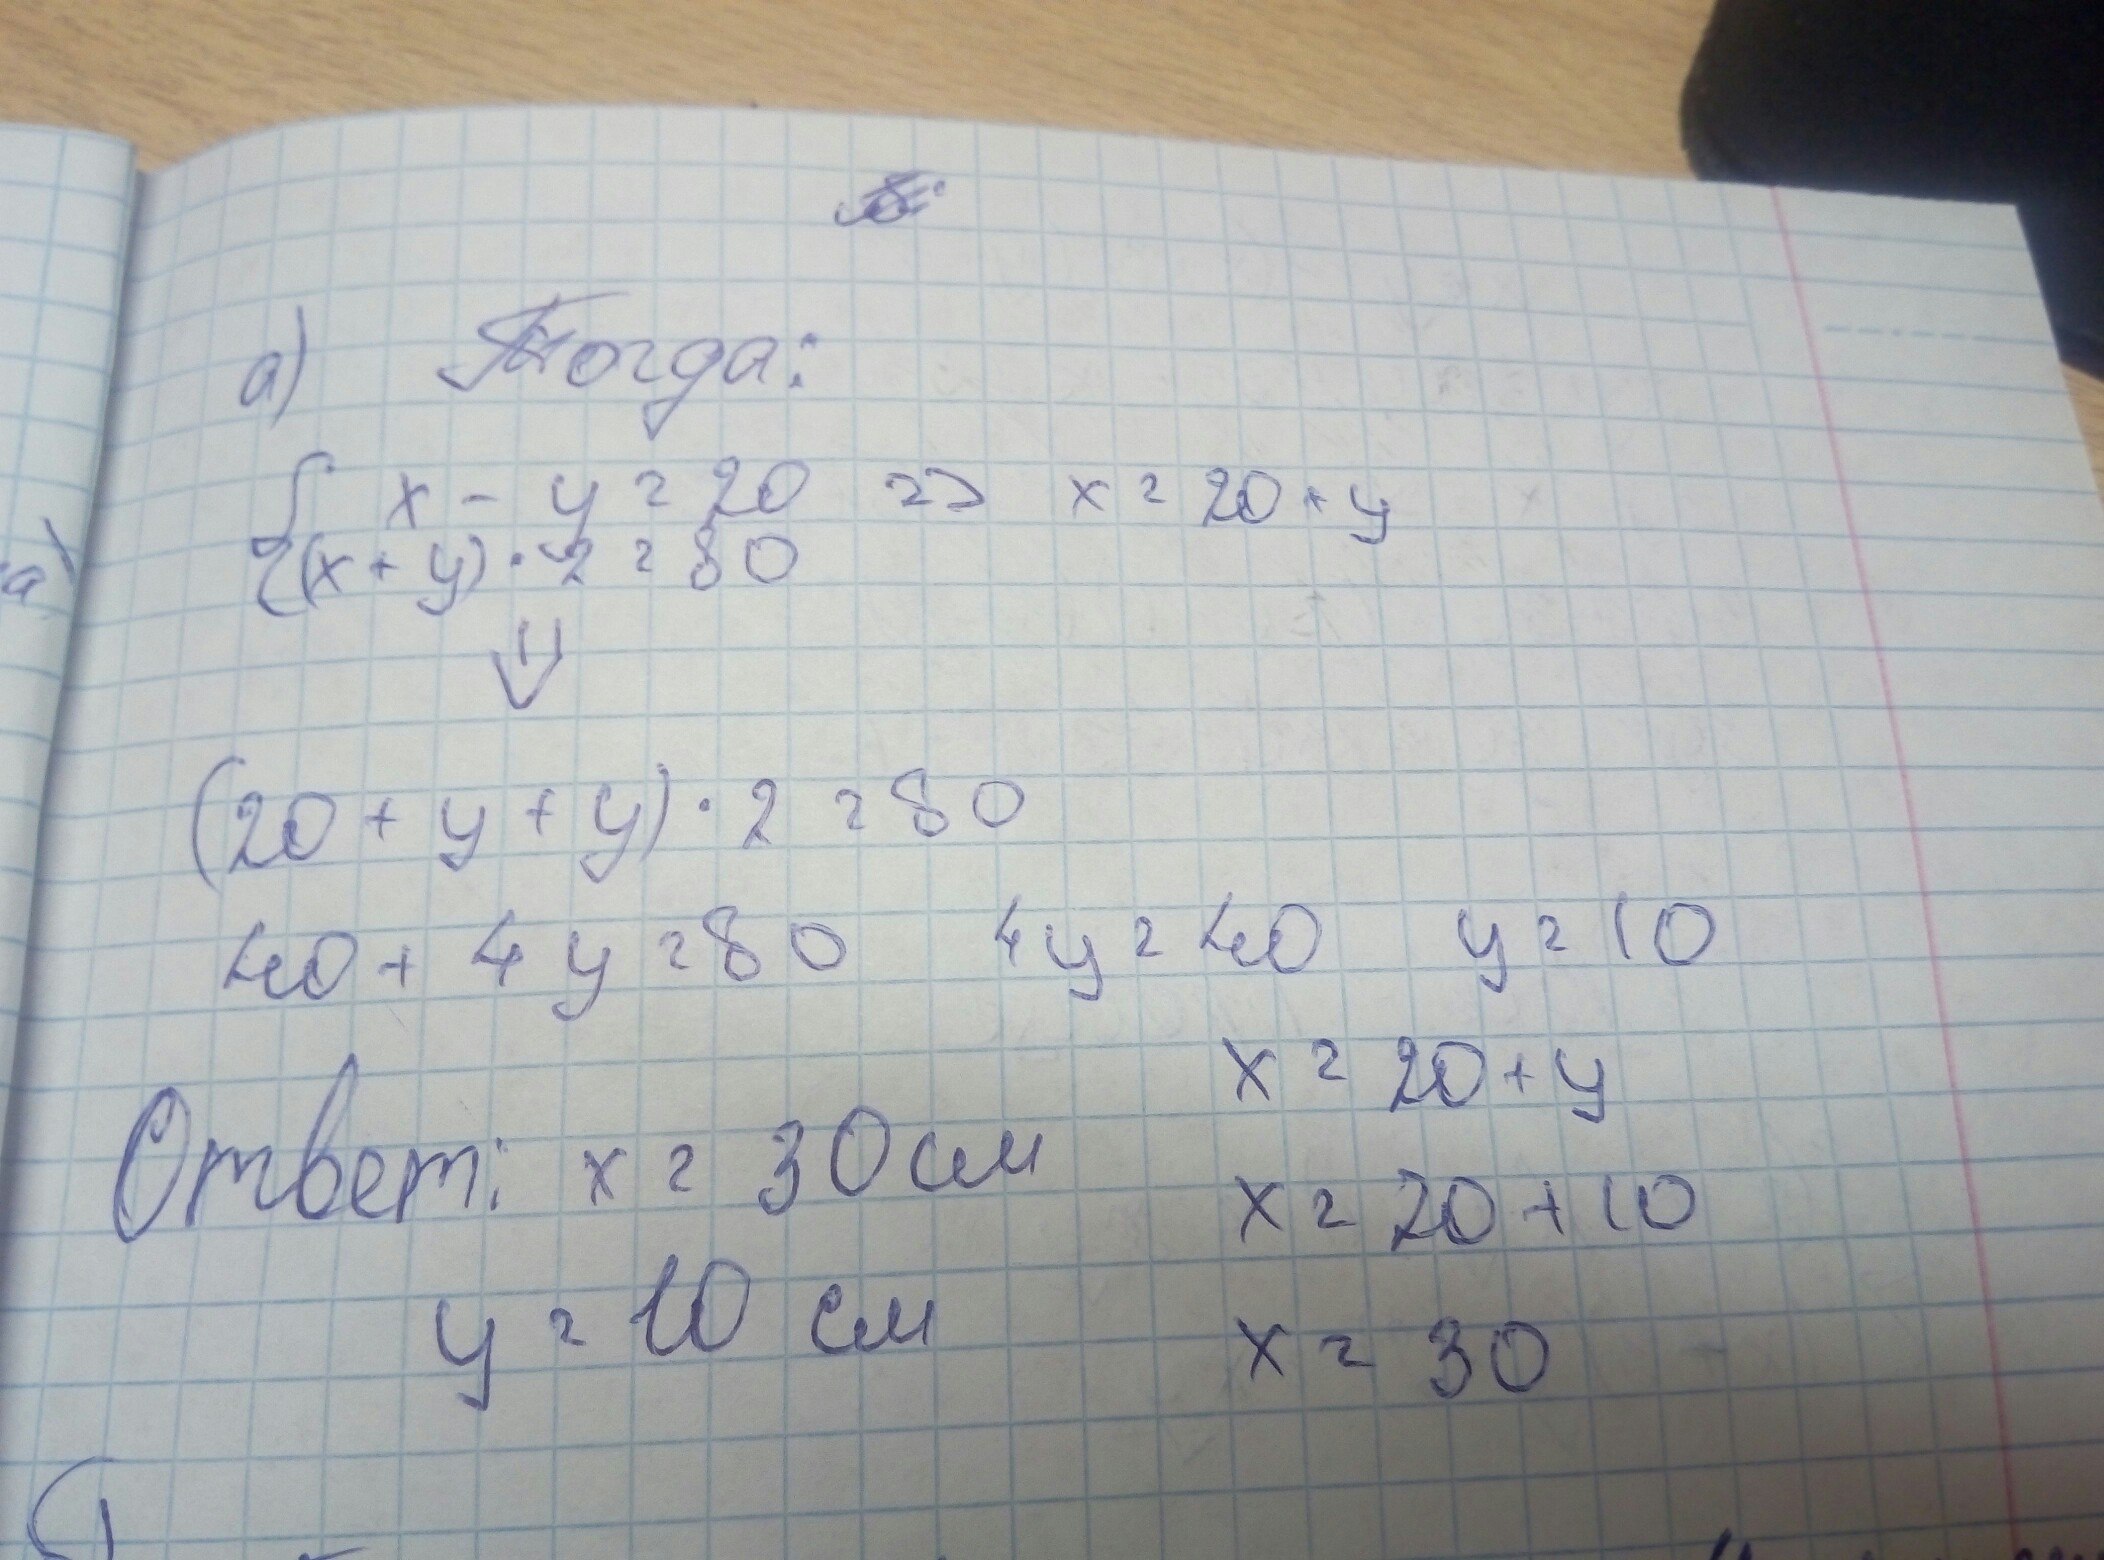 а) Тогда:
{ x - y = 20 => x = 20 + y
{ (x + y) · 2 = 80
(20 + y + y) · 2 = 80
40 + 4y = 80 4y = 40 y = 10
x = 20 + y
Ответ: x = 30 см
x = 20 + 10
y = 10 см
x = 30